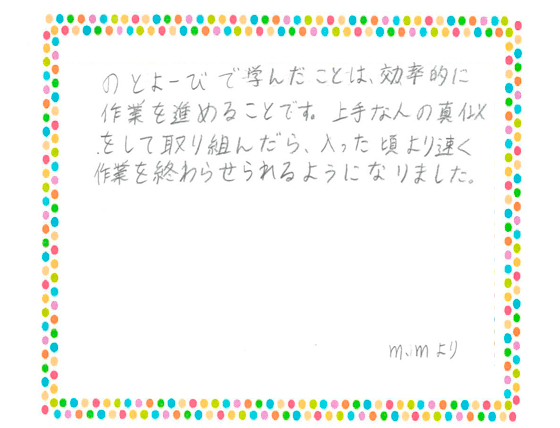 のとよーびで学んだことは、効率的に
作業を進めることです。上手な人の真似
をして取り組んだら、入った頃より速く
作業を終わらせられるようになりました。
m.mより